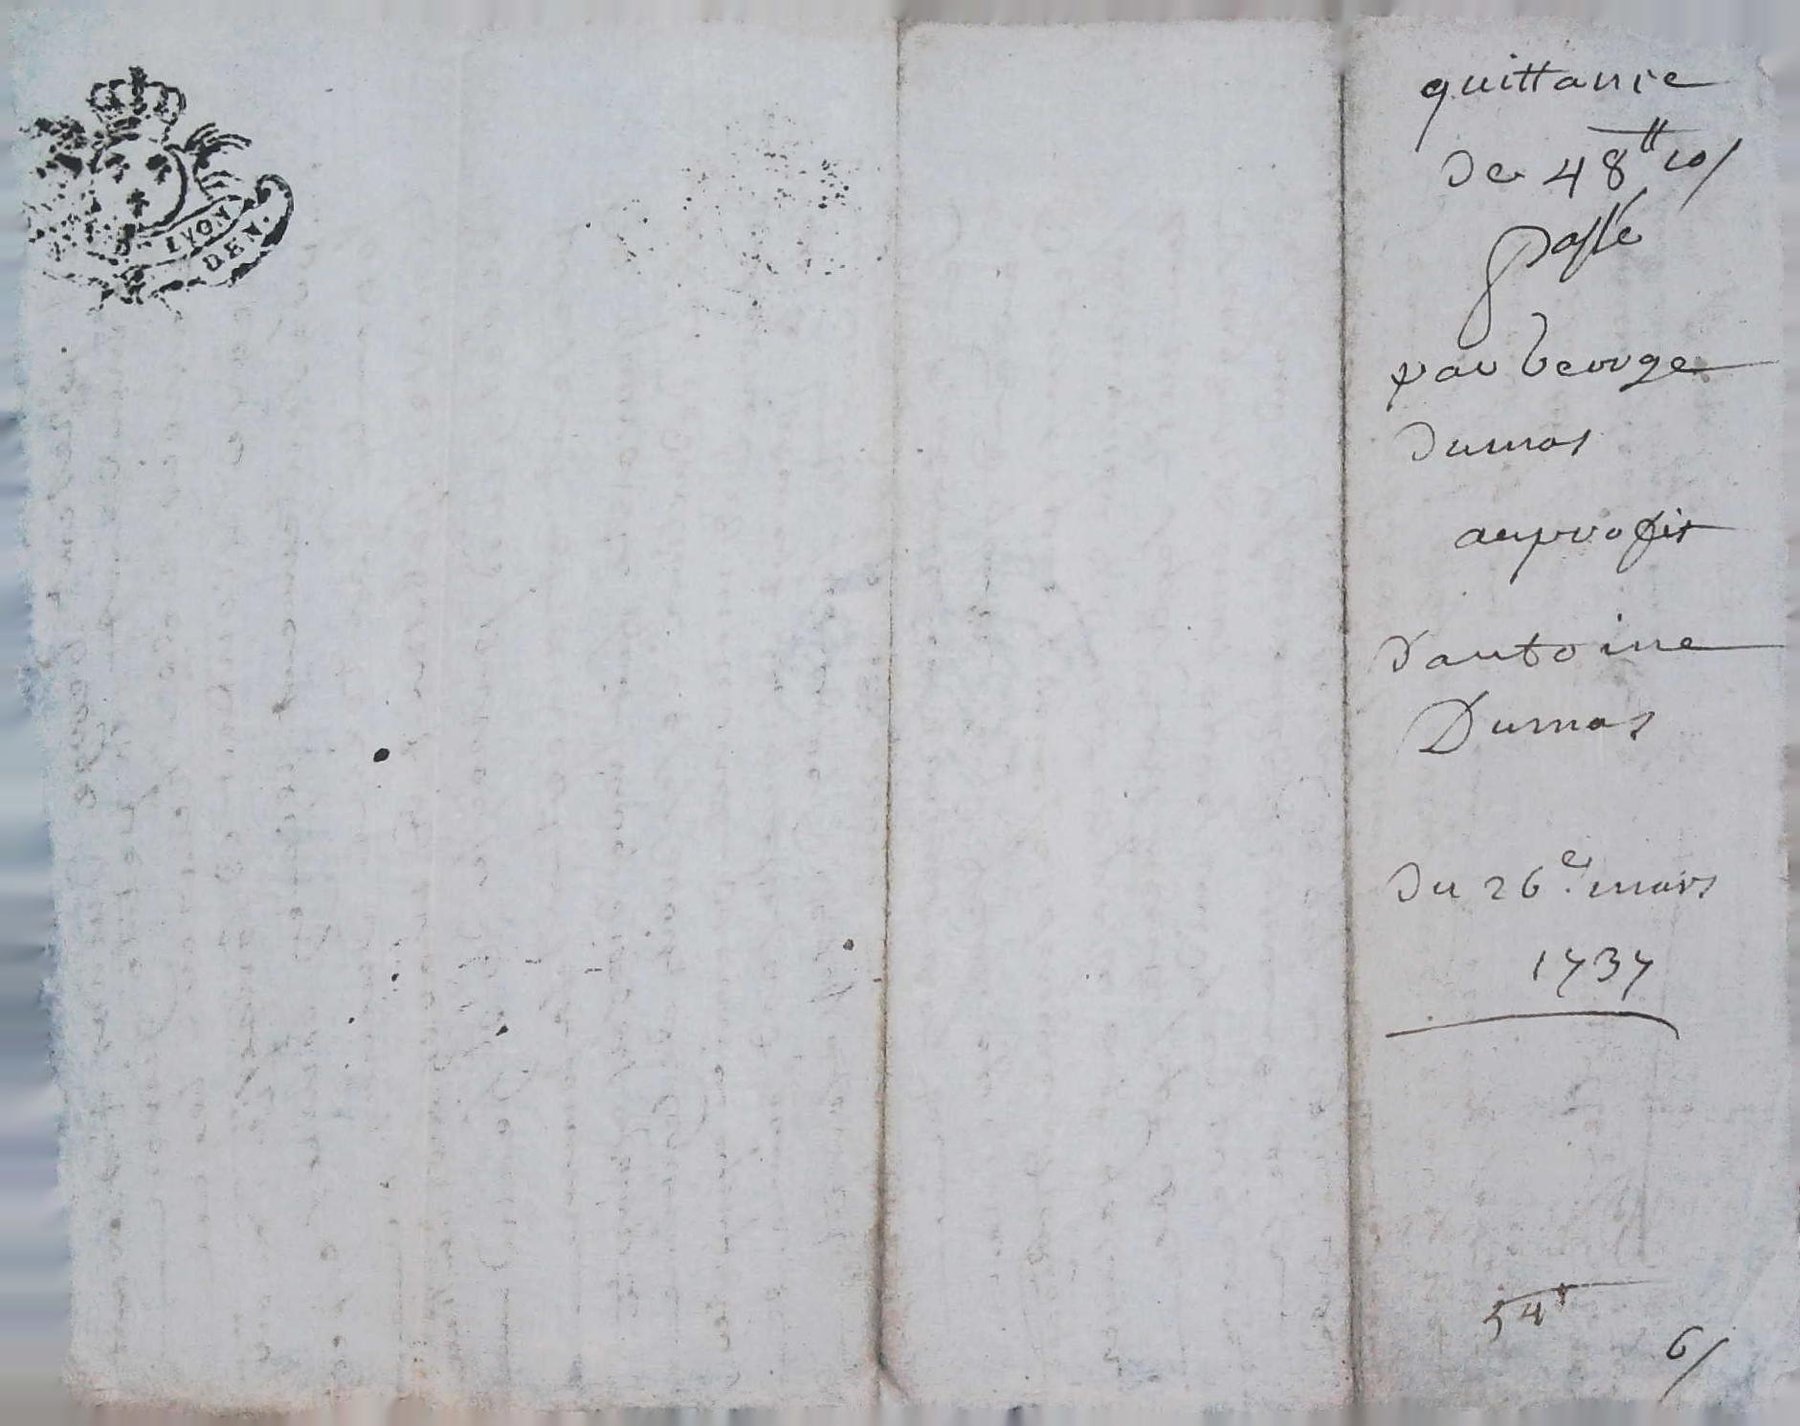 LYON
DEN.
quittance
de 48tt 10s
passé
par George
dumas
au profit
d'antoine
Dumas
du 26e mars
1737
54e
6s